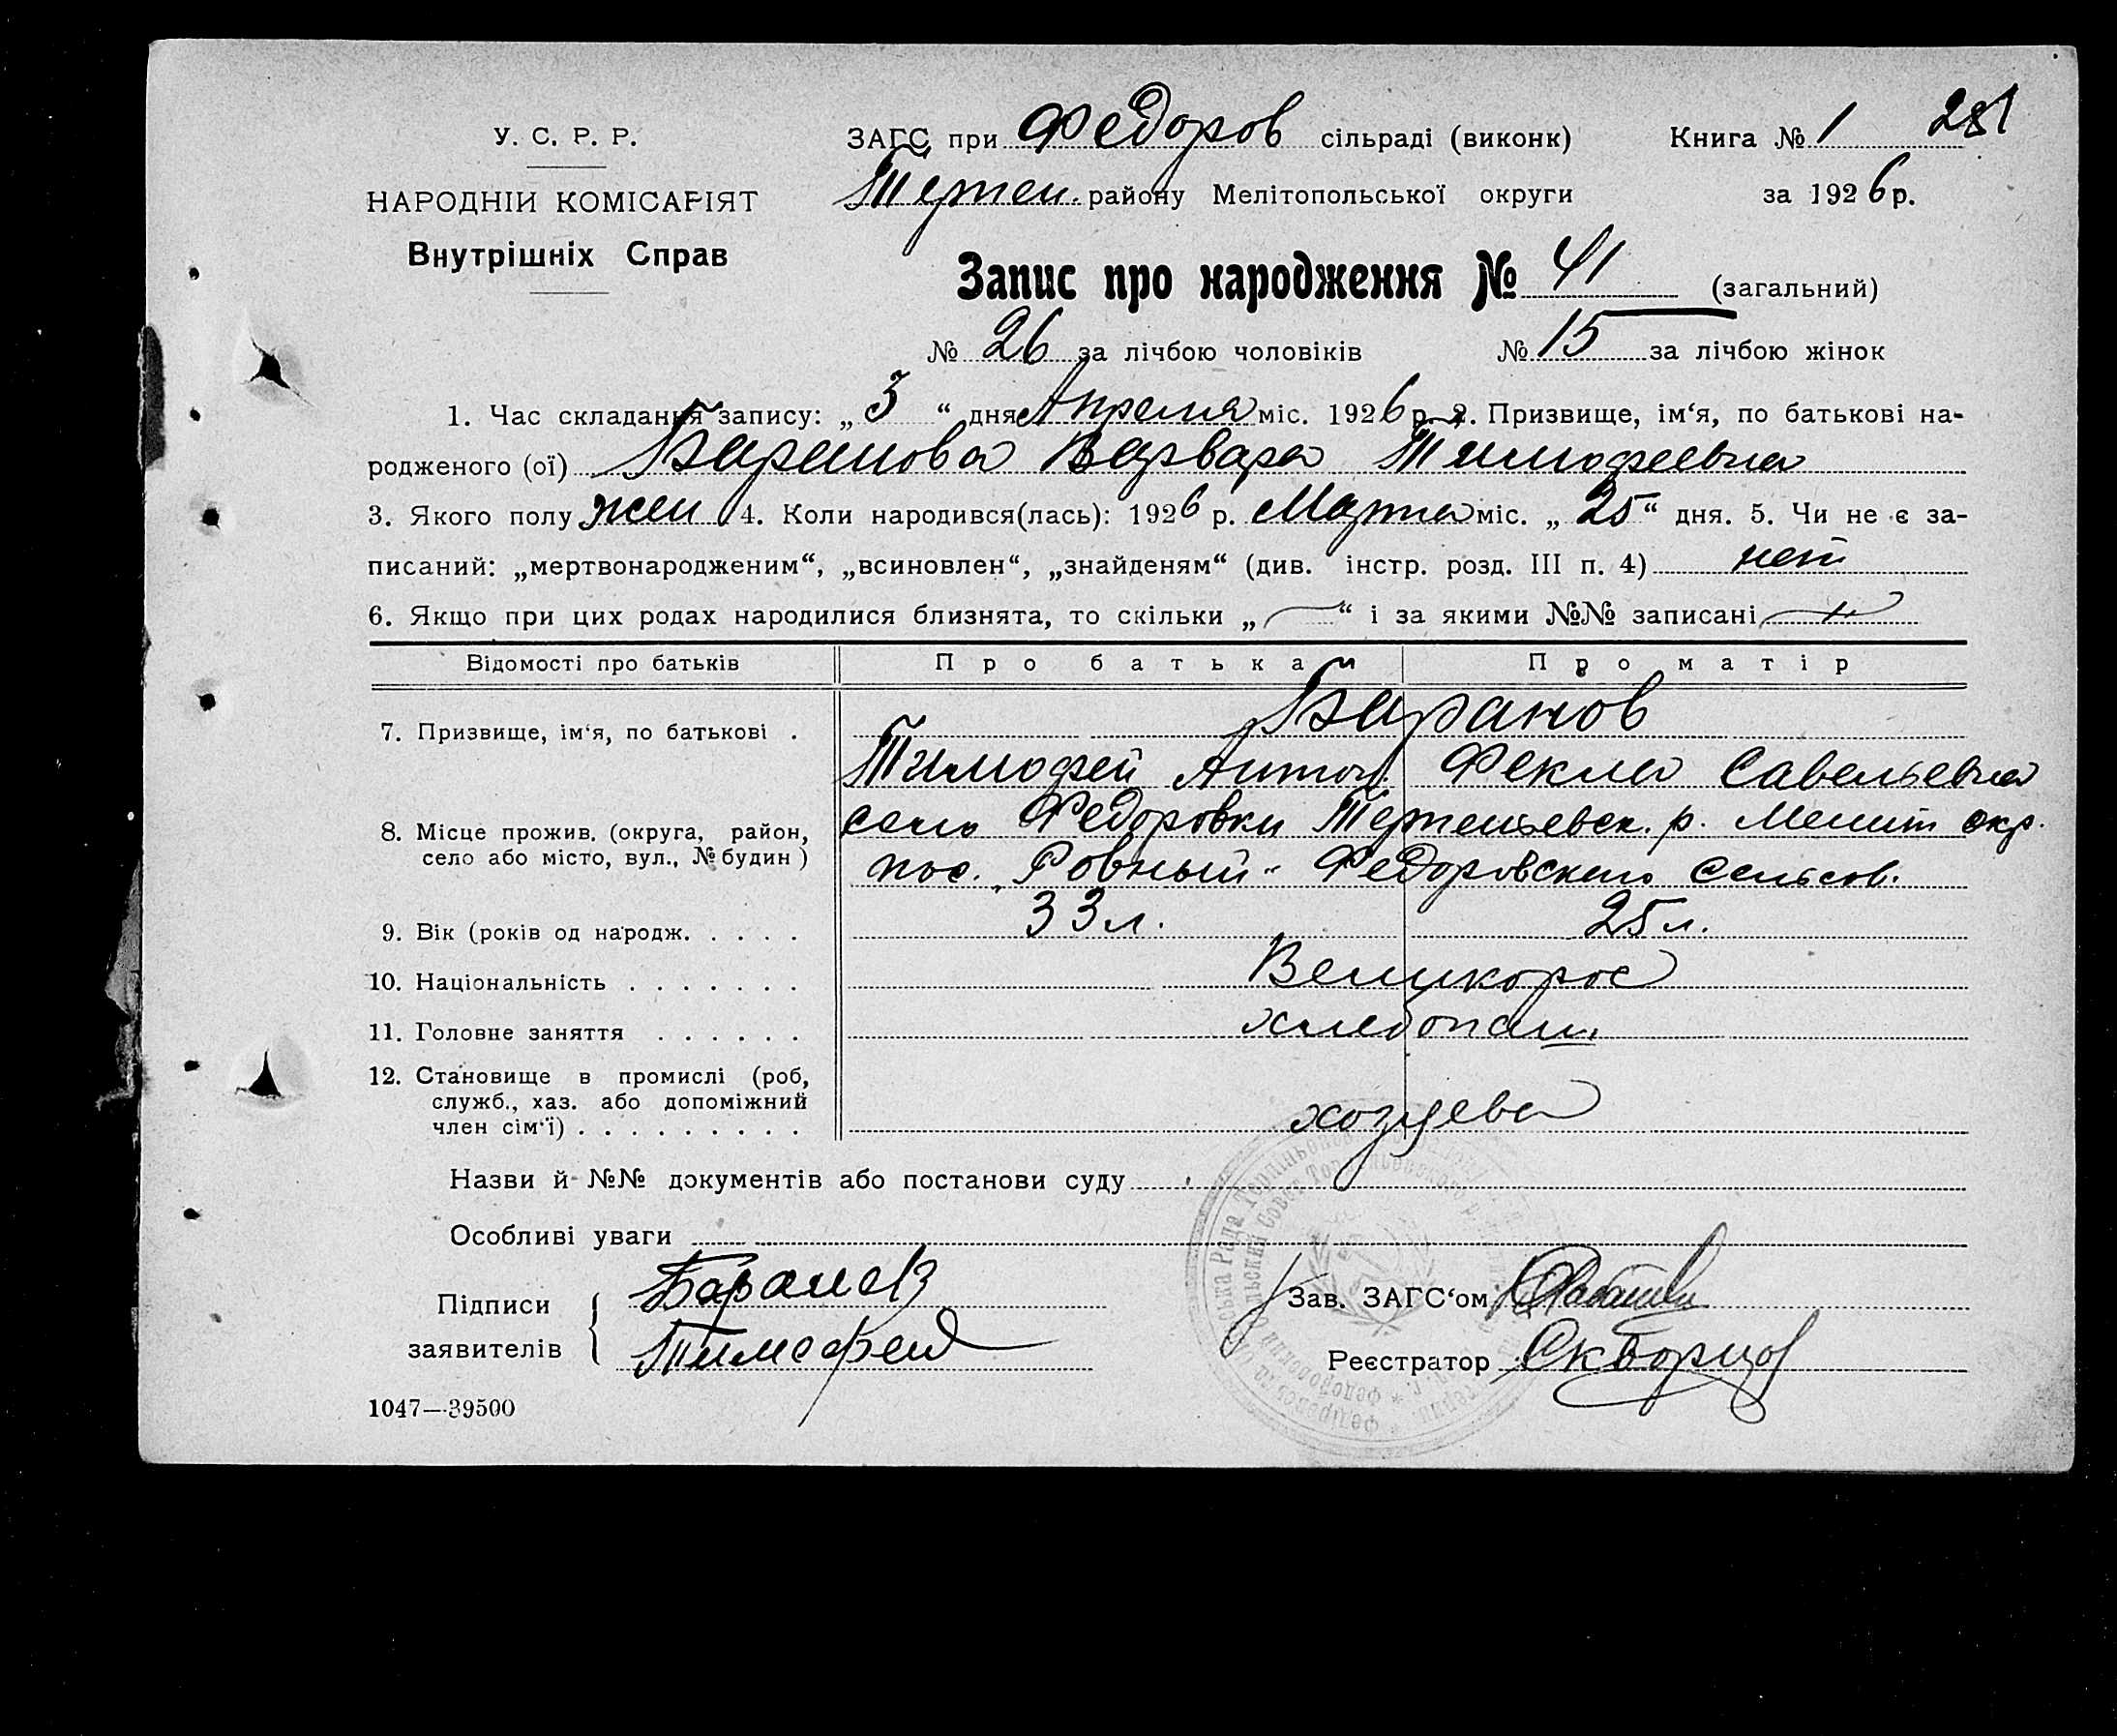 У. С. Р. Р.
НАРОДНІЙ КОМІСАРІЯТ
Внутрішніх Справ
ЗАГС при Федоров сільраді (виконк)
Терпен. району Мелітопольської округи
Книга № 1 281
за 1926 р.
Запис про народження № 41 (загальний)
№ 26 за лічбою чоловіків № 15 за лічбою жінок
1. Час складання запису: „ 3 “ дня Апреля міс. 1926 р. 2. Призвище, ім‘я, по батькові на-
родженого (ої) Баранова Варвара Тимофеевна
3. Якого полу жен 4. Коли народився(лась): 1926 р. Марта міс. „ 25 “ дня. 5. Чи не є за-
писаний: „мертвонародженим“, „всиновлен“, „знайденям“ (див. інстр. розд. III п. 4) нет
6. Якщо при цих родах народилися близнята, то скільки „ — “ і за якими №№ записані
Відомості про батьків Про батька Про матір
7. Призвище, ім‘я, по батькові . Баранов
Тимофей Антон. Фекла Савельевна
8. Місце прожив. (округа, район,
село або місто, вул., № будин )
село Федоровки Терпеньевск. р. Мелит окр.
пос. „Ровный“ Федоровского Сельсов.
9. Вік (років од народж. . . . . 33 л. 25 л.
10. Національність . . . . . . . Великорос
11. Головне заняття . . . . . . хлебопаш.
12. Становище в промислі (роб,
служб., хаз. або допоміжний
член сім‘ї) . . . . . . . . . хозяева
Назви й №№ документів або постанови суду
Особливі уваги
Підписи
заявителів
Баранов
Тимофей
Зав. ЗАГС‘ом
Реєстратор Скворцов
1047—39500